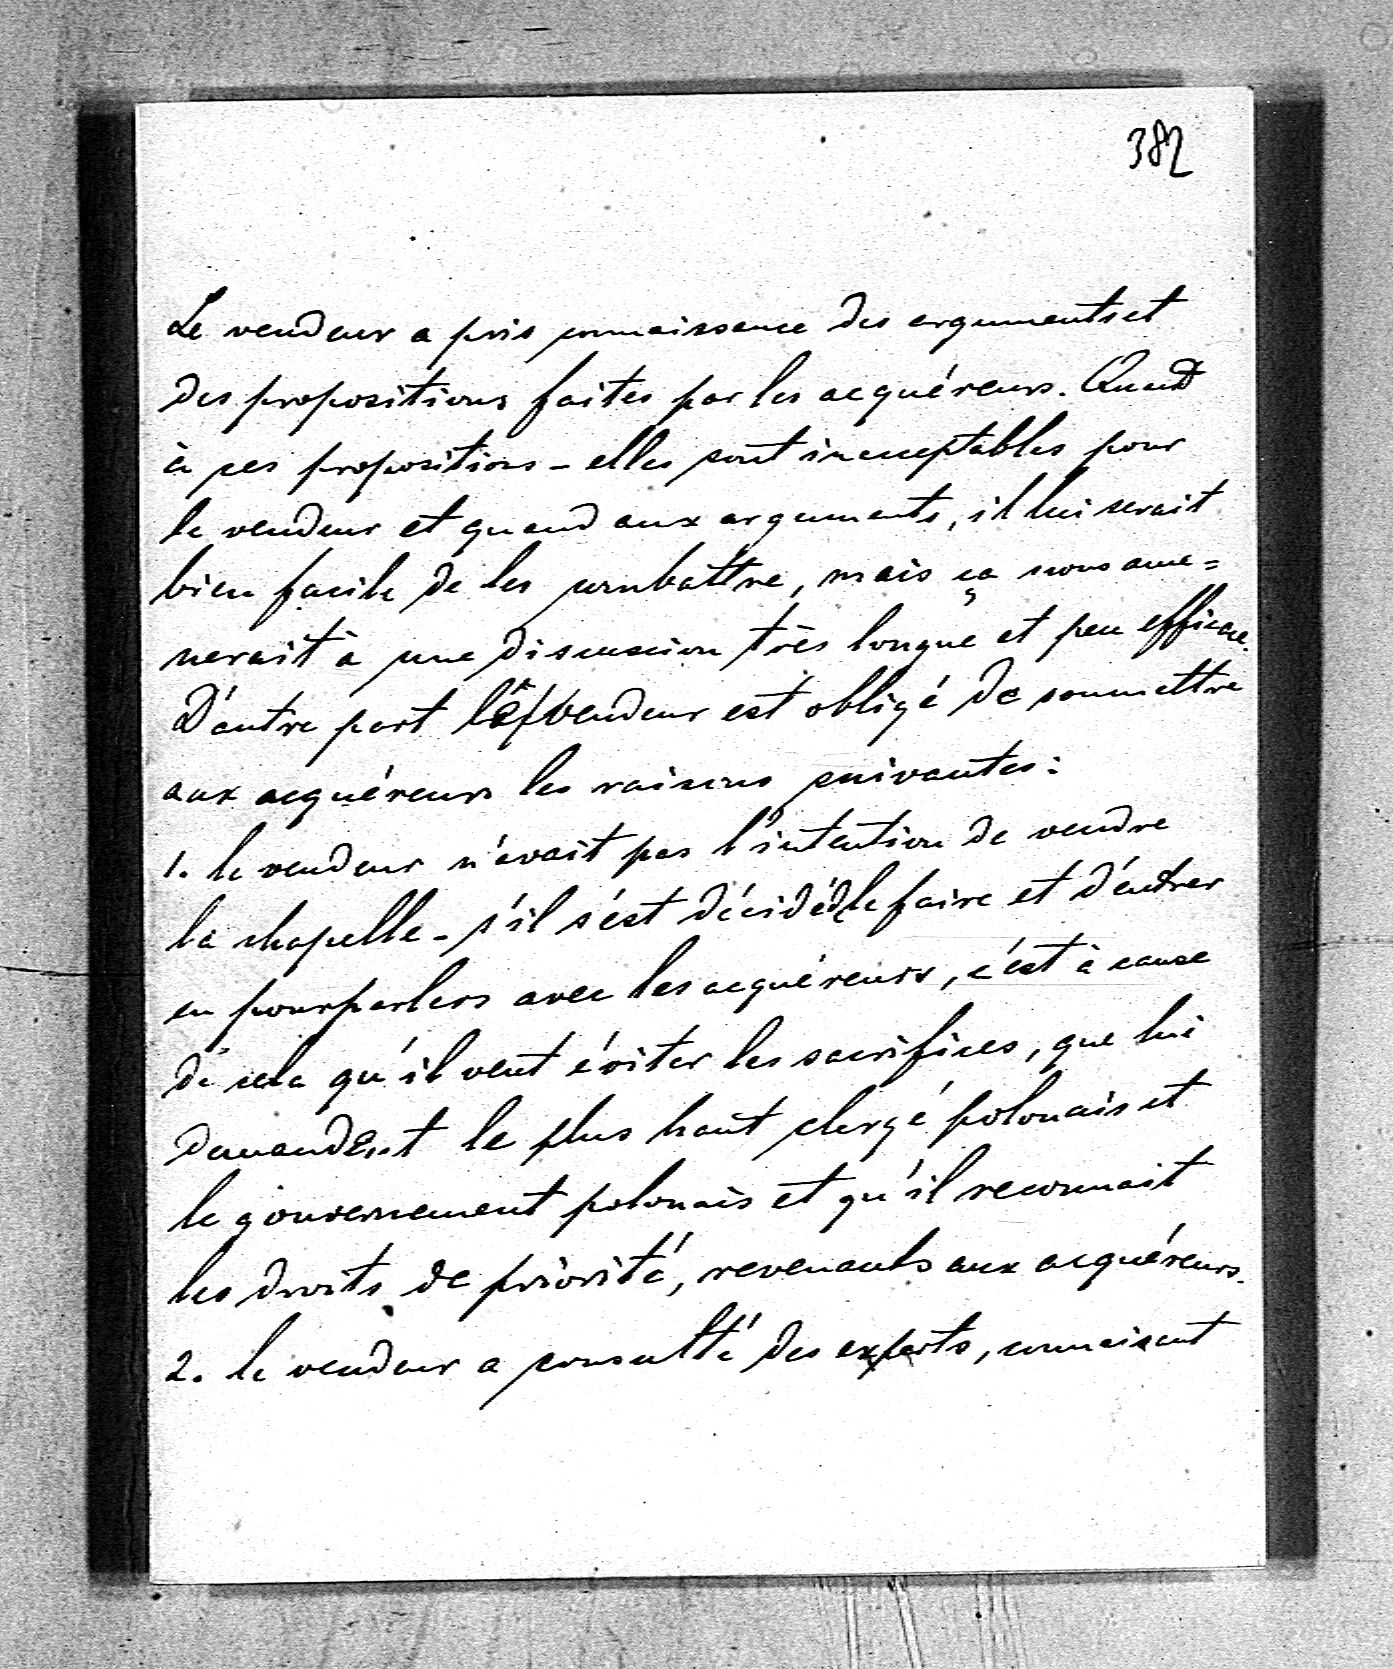 382
Le vendeur a pris connaissance des arguments et
des propositions faites par les acquéreurs. Quand
à ces propositions - elles sont inacceptables pour
le vendeur et quand aux arguments, il lui serait
bien facile de les combattre, mais ça nous ame=
nerait à une discussion très longue et peu efficace.
D'autre part le vendeur est obligé de soumettre
aux acquéreurs les raisons suivantes:
1. le vendeur n'avait pas l'intention de vendre
la chapelle - s'il s'est décidé de le faire et d'entrer
en pourparlers avec les acquéreurs, c'est à cause
de cela qu'il veut éviter les sacrifices, que lui
demandent le plus haut clergé polonais et
le gouvernement polonais et qu'il reconnait
les droits de priorité, revenants aux acquéreurs.
2. le vendeur a consulté des experts, connaisant